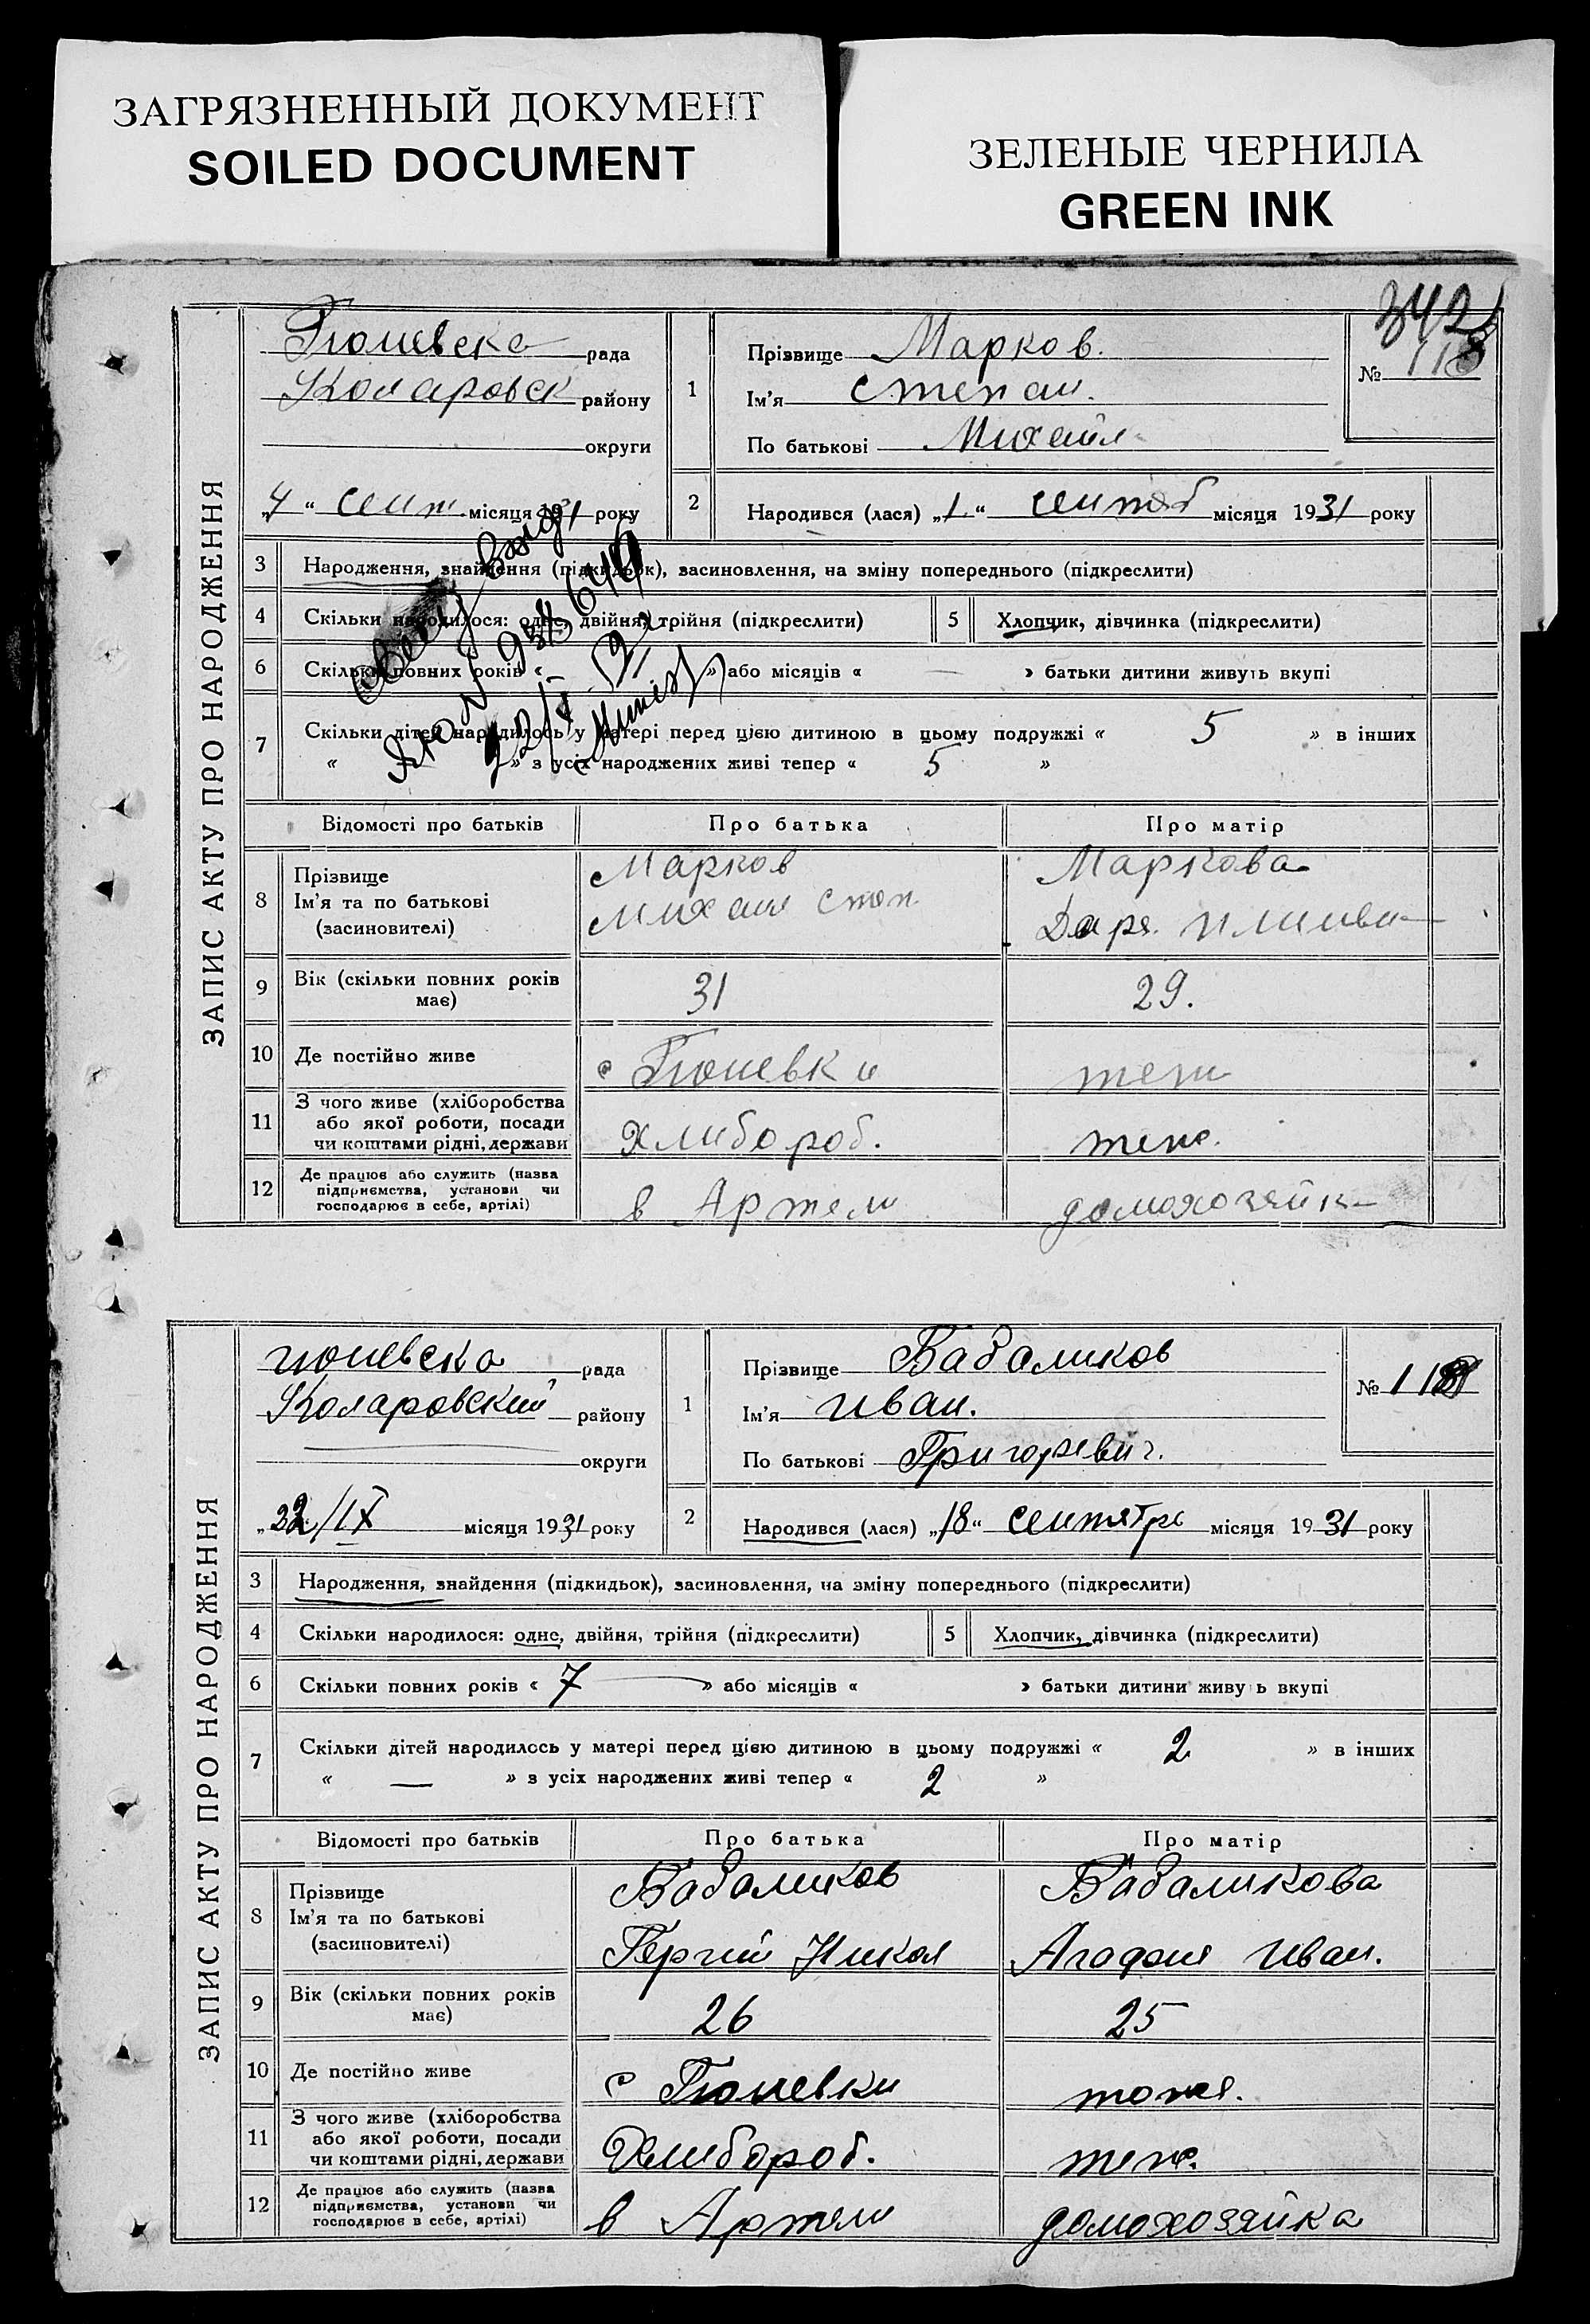 ЗАГРЯЗНЕННЫЙ ДОКУМЕНТ
SOILED DOCUMENT
ЗЕЛЕНЫЕ ЧЕРНИЛА
GREEN INK
342
ЗАПИС АКТУ ПРО НАРОДЖЕННЯ
Гюневска рада
Коларовск району
округи
„4“ сент. місяця 1931 року
1
Прізвище Марков.
Ім'я Степан.
По батькові Михайл
№ 118
2
Народився (лася) „1.“ сентяб місяця 1931 року
3 Народження, знайдення (підкидьок), засиновлення, на зміну попереднього (підкреслити)
4 Скільки народилося: одне, двійня, трійня (підкреслити) 5 Хлопчик, дівчинка (підкреслити)
6 Скільки повних років « » або місяців « — » батьки дитини живуть вкупі
7 Скільки дітей народилось у матері перед цією дитиною в цьому подружжі « 5 » в інших
« » з усіх народжених живі тепер « 5 »
Відомості про батьків Про батька Про матір
8 Прізвище
Ім'я та по батькові
(засиновителі)
Марков
Михаил Степ
Маркова
Даря
9 Вік (скільки повних років має) 31 29.
10 Де постійно живе с Гюневки теж
11 З чого живе (хліборобства або якої роботи, посади чи коштами рідні, держави Хлибороб. теж.
12 Де працює або служить (назва підприємства, установи чи господарює в себе, артілі) в Артели домохозяйк
ЗАПИС АКТУ ПРО НАРОДЖЕННЯ
гюневска рада
Коларовский району
округи
„22/IX місяця 1931 року
1
Прізвище Бабаликов
Ім'я Иван.
По батькові Григорьевич.
№
2
Народився (лася) „18“ сентябрь місяця 1931 року
3 Народження, знайдення (підкидьок), засиновлення, на зміну попереднього (підкреслити)
4 Скільки народилося: одне, двійня, трійня (підкреслити) 5 Хлопчик, дівчинка (підкреслити)
6 Скільки повних років « 7 » або місяців « » батьки дитини живуть вкупі
7 Скільки дітей народилось у матері перед цією дитиною в цьому подружжі « 2 » в інших
« — » з усіх народжених живі тепер « 2 »
Відомості про батьків Про батька Про матір
8 Прізвище
Ім'я та по батькові
(засиновителі)
Бабаликов
Никол
Бабаликова
Агафия Иван.
9 Вік (скільки повних років має) 26 25
10 Де постійно живе с Гюневки тоже.
11 З чого живе (хліборобства або якої роботи, посади чи коштами рідні, держави Хлибороб. теж.
12 Де працює або служить (назва підприємства, установи чи господарює в себе, артілі) в Артели домохозяйка